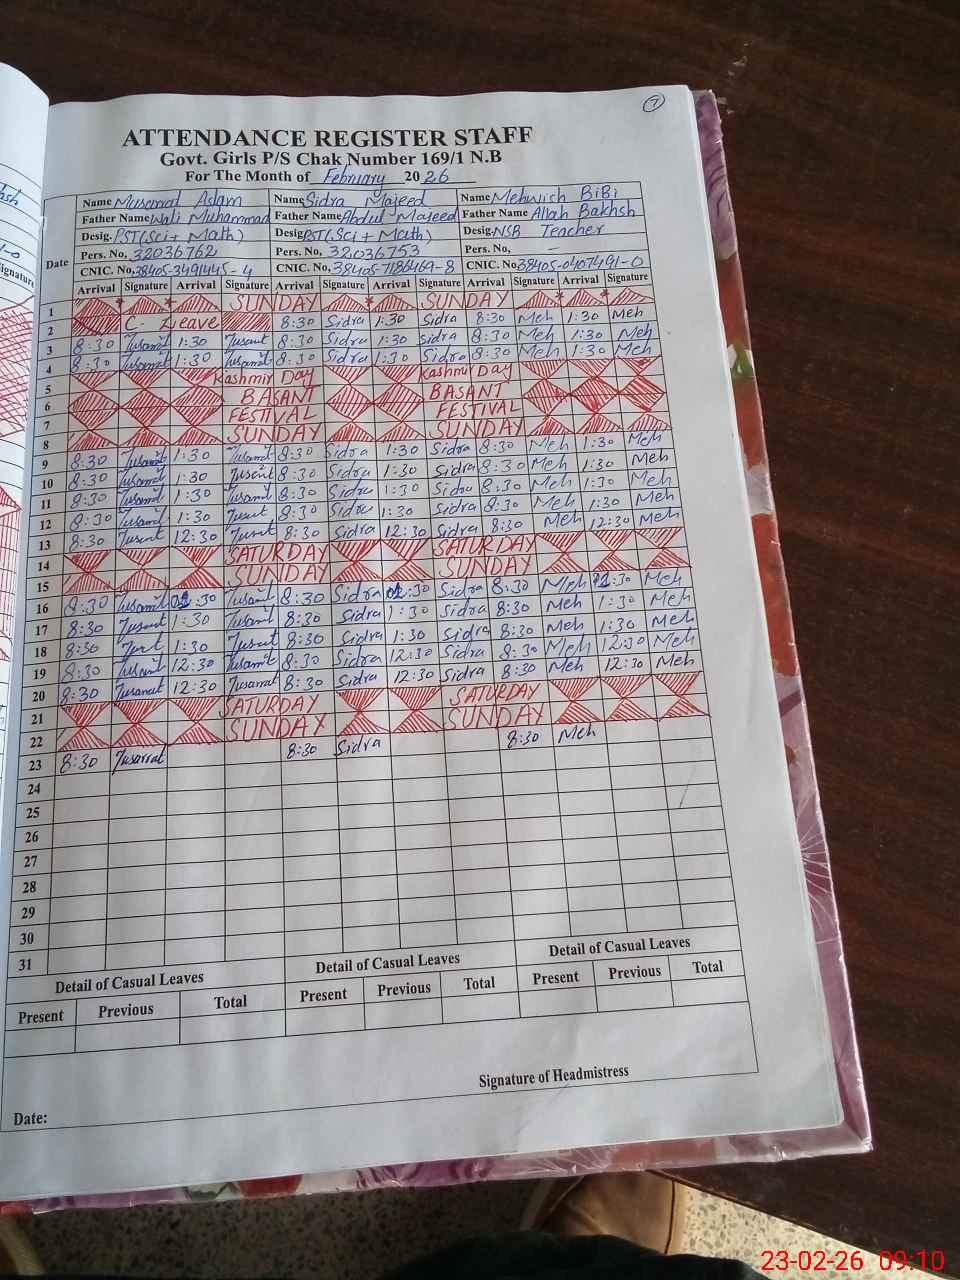 7
ATTENDANCE REGISTER STAFF
Govt. Girls P/S Chak Number 169/1 N.B
For The Month of February 2026
Name Musarrat Aslam Name Sidra Majeed Name Mehwish BiBi
Father Name Wali Muhammad Father Name Abdul Majeed Father Name Allah Bakhsh
Desig. PST(Sci + Math) Desig. PST(Sci + Math) Desig. NSB Teacher
Pers. No, 32036762 Pers. No, 32036753 Pers. No, -
CNIC. No, 38405-3491445-4 CNIC. No, 38405-7186469-8 CNIC. No, 38405-0407491-0
Date Arrival Signature Arrival Signature Arrival Signature Arrival Signature Arrival Signature Arrival Signature
1 SUNDAY SUNDAY
2 C- Leave 8:30 Sidra 1:30 Sidra 8:30 Meh 1:30 Meh
3 8:30 1:30 8:30 Sidra 1:30 Sidra 8:30 Meh 1:30 Meh
4 8:30 1:30 8:30 Sidra 1:30 Sidra 8:30 Meh 1:30 Meh
5 Kashmir Day Kashmir Day
6 BASANT BASANT
7 FESTIVAL FESTIVAL
8 SUNDAY SUNDAY
9 8:30 1:30 8:30 Sidra 1:30 Sidra 8:30 Meh 1:30 Meh
10 8:30 1:30 8:30 Sidra 1:30 Sidra 8:30 Meh 1:30 Meh
11 8:30 1:30 8:30 Sidra 1:30 Sidra 8:30 Meh 1:30 Meh
12 8:30 1:30 8:30 Sidra 1:30 Sidra 8:30 Meh 1:30 Meh
13 8:30 12:30 8:30 Sidra 12:30 Sidra 8:30 Meh 12:30 Meh
14 SATURDAY SATURDAY
15 SUNDAY SUNDAY
16 8:30 :30 8:30 Sidra :30 Sidra 8:30 Meh :30 Meh
17 8:30 1:30 8:30 Sidra 1:30 Sidra 8:30 Meh 1:30 Meh
18 8:30 1:30 8:30 Sidra 1:30 Sidra 8:30 Meh 1:30 Meh
19 8:30 12:30 8:30 Sidra 12:30 Sidra 8:30 Meh 12:30 Meh
20 8:30 12:30 8:30 Sidra 12:30 Sidra 8:30 Meh 12:30 Meh
21 SATURDAY SATURDAY
22 SUNDAY SUNDAY
23 8:30 Musarrat 8:30 Sidra 8:30 Meh
24
25
26
27
28
29
30
31
Detail of Casual Leaves Detail of Casual Leaves Detail of Casual Leaves
Present Previous Total Present Previous Total Present Previous Total
Signature of Headmistress
Date:
23-02-26 09:10